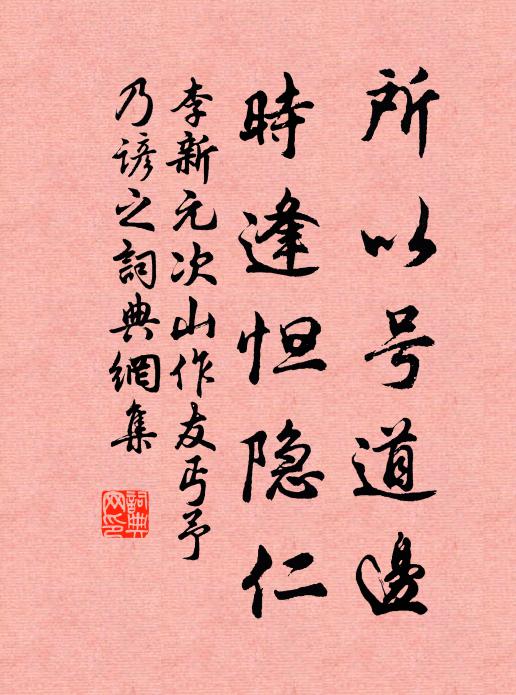 所以号道邊
時逢怛隐仁
李新元次山作友丐予
乃諺之詞典網集
詞典網印